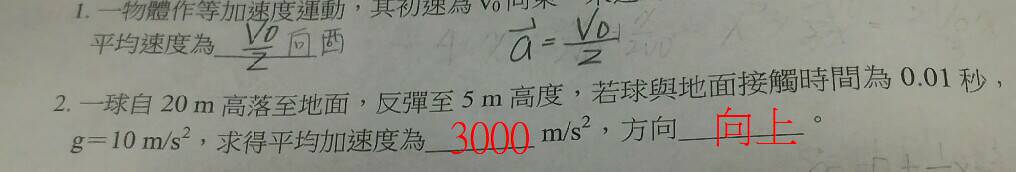 1. 一物體作等加速度運動，其初速為 V₀ 向東
平均速度為 V₀/2 向西
a⃗ = V₀/2
2. 一球自 20 m 高落至地面，反彈至 5 m 高度，若球與地面接觸時間為 0.01 秒，
g＝10 m/s²，求得平均加速度為 3000 m/s²，方向 向上 。